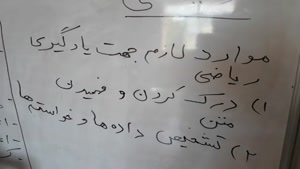 موارد لازم جهت یادگیری
ریاضی
۱) درک کردن و فهمیدن
متن
۲) تشخیص داده ها و خواسته ها